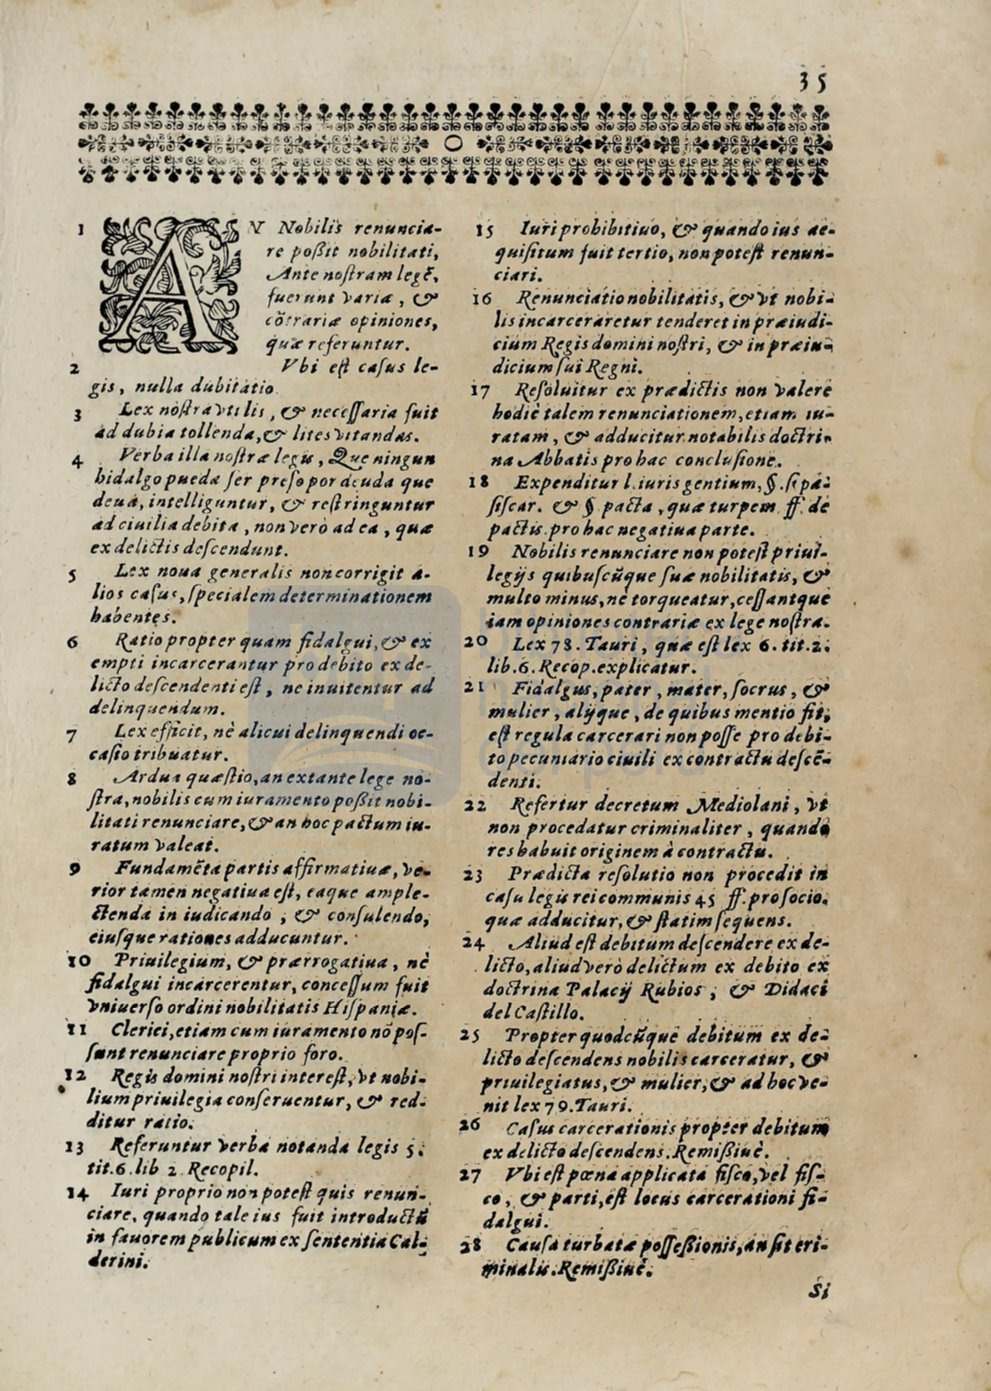 35
1 AN Nobilis renuncia-
re poßit nobilitati,
Ante nostram legẽ,
fuerunt variæ, &
cõtrariæ opiniones,
quæ referuntur.
2 Vbi est casus le-
gis, nulla dubitatio
3 Lex nostra vtilis, & necessaria fuit
ad dubia tollenda, & lites vitandas.
4 Verba illa nostræ legis, Que ningun
hidalgo pueda ser preso por deuda que
deua, intelliguntur, & restringuntur
ad ciuilia debita, non verò ad ea, quæ
ex delictis descendunt.
5 Lex noua generalis non corrigit a-
lios casus, specialem determinationem
habentes.
6 Ratio propter quam fidalgui, & ex
empti incarcerantur pro debito ex de-
licto descendenti est, ne inuitentur ad
delinquendum.
7 Lex efficit, nè alicui delinquendi oc-
casio tribuatur.
8 Ardua quæstio, an extante lege no-
stra, nobilis cum iuramento poßit nobi-
litati renunciare, & an hoc pactum iu-
ratum valeat.
9 Fundamẽta partis affirmatiuæ, ve-
rior tamen negatiua est, eaque ample-
ctenda in iudicando, & consulendo,
eiusque rationes adducuntur.
10 Priuilegium, & prærrogatiua, nè
fidalgui incarcerentur, concessum fuit
vniuerso ordini nobilitatis Hispaniæ.
11 Clerici, etiam cum iuramento nõ pos-
sunt renunciare proprio foro.
12 Regis domini nostri interest, vt nobi-
lium priuilegia conseruentur, & red-
ditur ratio.
13 Referuntur verba notanda legis 5.
tit.6.lib 2 Recopil.
14 Iuri proprio non potest quis renun-
ciare, quando tale ius fuit introductũ
in fauorem publicum ex sententia Cal-
derini.
15 Iuri prohibitiuo, & quando ius ac-
quisitum fuit tertio, non potest renun-
ciari.
16 Renunciatio nobilitatis, & vt nobi-
lis incarceraretur tenderet in præiudi-
cium Regis domini nostri, & in præiu-
dicium sui Regni.
17 Resoluitur ex prædictis non valere
hodiè talem renunciationem, etiam iu-
ratam, & adducitur notabilis doctri-
na Abbatis pro hac conclusione.
18 Expenditur l.iuris gentium, §.si pa-
siscar. & §.pacta, quæ turpem ff. de
pactis.pro hac negatiua parte.
19 Nobilis renunciare non potest priui-
legijs quibuscũque suæ nobilitatis, &
multo minus, nè torqueatur, cessantque
iam opiniones contrariæ ex lege nostra.
20 Lex 78. Tauri, quæ est lex 6. tit.2.
lib.6. Recop. explicatur.
21 Fidalgus, pater, mater, socrus, &
mulier, alijque, de quibus mentio fit,
est regula carcerari non posse pro debi-
to pecuniario ciuili ex contractu descẽ-
denti.
22 Refertur decretum Mediolani, vt
non procedatur criminaliter, quando
res habuit originem à contractu.
23 Prædicta resolutio non procedit in
casu legis rei communis 45 ff. pro socio.
quæ adducitur, & statim sequens.
24 Aliud est debitum descendere ex de-
licto, aliud verò delictum ex debito ex
doctrina Palacij Rubios, & Didaci
del Castillo.
25 Propter quodcũque debitum ex de-
licto descendens nobilis carceratur, &
priuilegiatus, & mulier, & ad hoc ve-
nit lex 79. Tauri.
26 Casus carcerationis propter debitum
ex delicto descendens. Remißiuè.
27 Vbi est pœna applicata fisco, vel fis-
co, & parti, est locus carcerationi fi-
dalgui.
28 Causa turbatæ possessionis, an sit cri-
minalis. Remißiuè.
Si